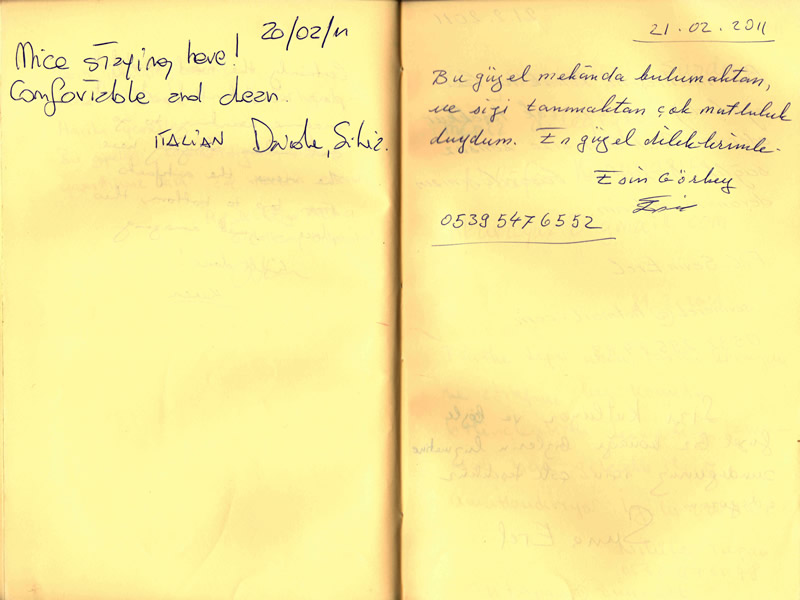 20/02/11
Nice staying here!
Comfortable and clean.
ITALIAN Davide,
21.02.2011
Bu güzel mekânda bulumaktan,
ve sizi tanımaktan çok mutluluk
duydum. En güzel dileklerimle.
Esin Görbey
0539 547 6552